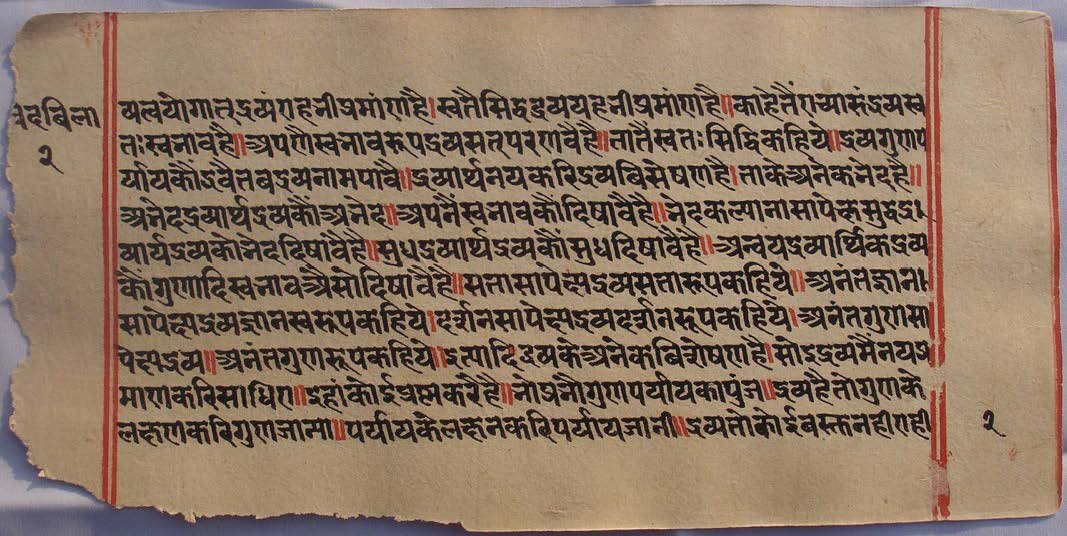 चिदविला
२
व्यत्वयोगात् द्रव्यं एह नी प्रमांण है। स्वतै सिद्ध द्रव्य यह नी प्रमांण है॥ काहे तैं गच्यासं द्रव्यस्व
तः स्वभाव है॥ अपणै स्वभावरूप द्रव्य सत परणवै है॥ तातै स्वतः सिद्धि कहिये॥ द्रव्य गुण प
र्याय कौं द्रवै तब द्रव्य नाम पावै॥ द्रव्यार्थ नय करि द्रव्य बिसेषण है। ताके अनेक भेद है॥
अभेद द्रव्यार्थ द्रव्य कौं अभेद॥ अपनैं स्वभाव कौं दिषावै है॥ भेद कल्पाना सापेक्ष सुद्ध द्र।
व्यार्थ द्रव्य को भेद दिषांवै है॥ सुध द्रव्यार्थ द्रव्य कौं सुध दिषावै है॥ अन्वय द्रव्यार्थिक द्रव्य
कौं गुणादि स्वभाव अैसो दिषावै है॥ सत्ता सापेक्ष द्रव्य सत्तारूप कहिये॥ अनंत ज्ञान।
सापेक्ष द्रव्य ज्ञान स्वरूप कहिये। दर्शन सापेक्ष द्रव्य दर्शनरूप कहिये। अनंत गुण सा
पेक्ष द्रव्य॥ अनंत गुण रूप कहिये॥ इत्यादि द्रव्य के अनेक बिशेषण है। सो इ द्रव्य मैं नय प्र
माण करि साधिए॥ इहां कोई प्रष्ण करै है॥ भो प्रभो गुण पर्याय का पुंज॥ द्रव्य है तो गुण के
लक्षण करि गुण जान्या॥ पर्याय के लक्षन करि पर्याय जानी॥ द्रव्य तो कोई बस्त नही एही
२